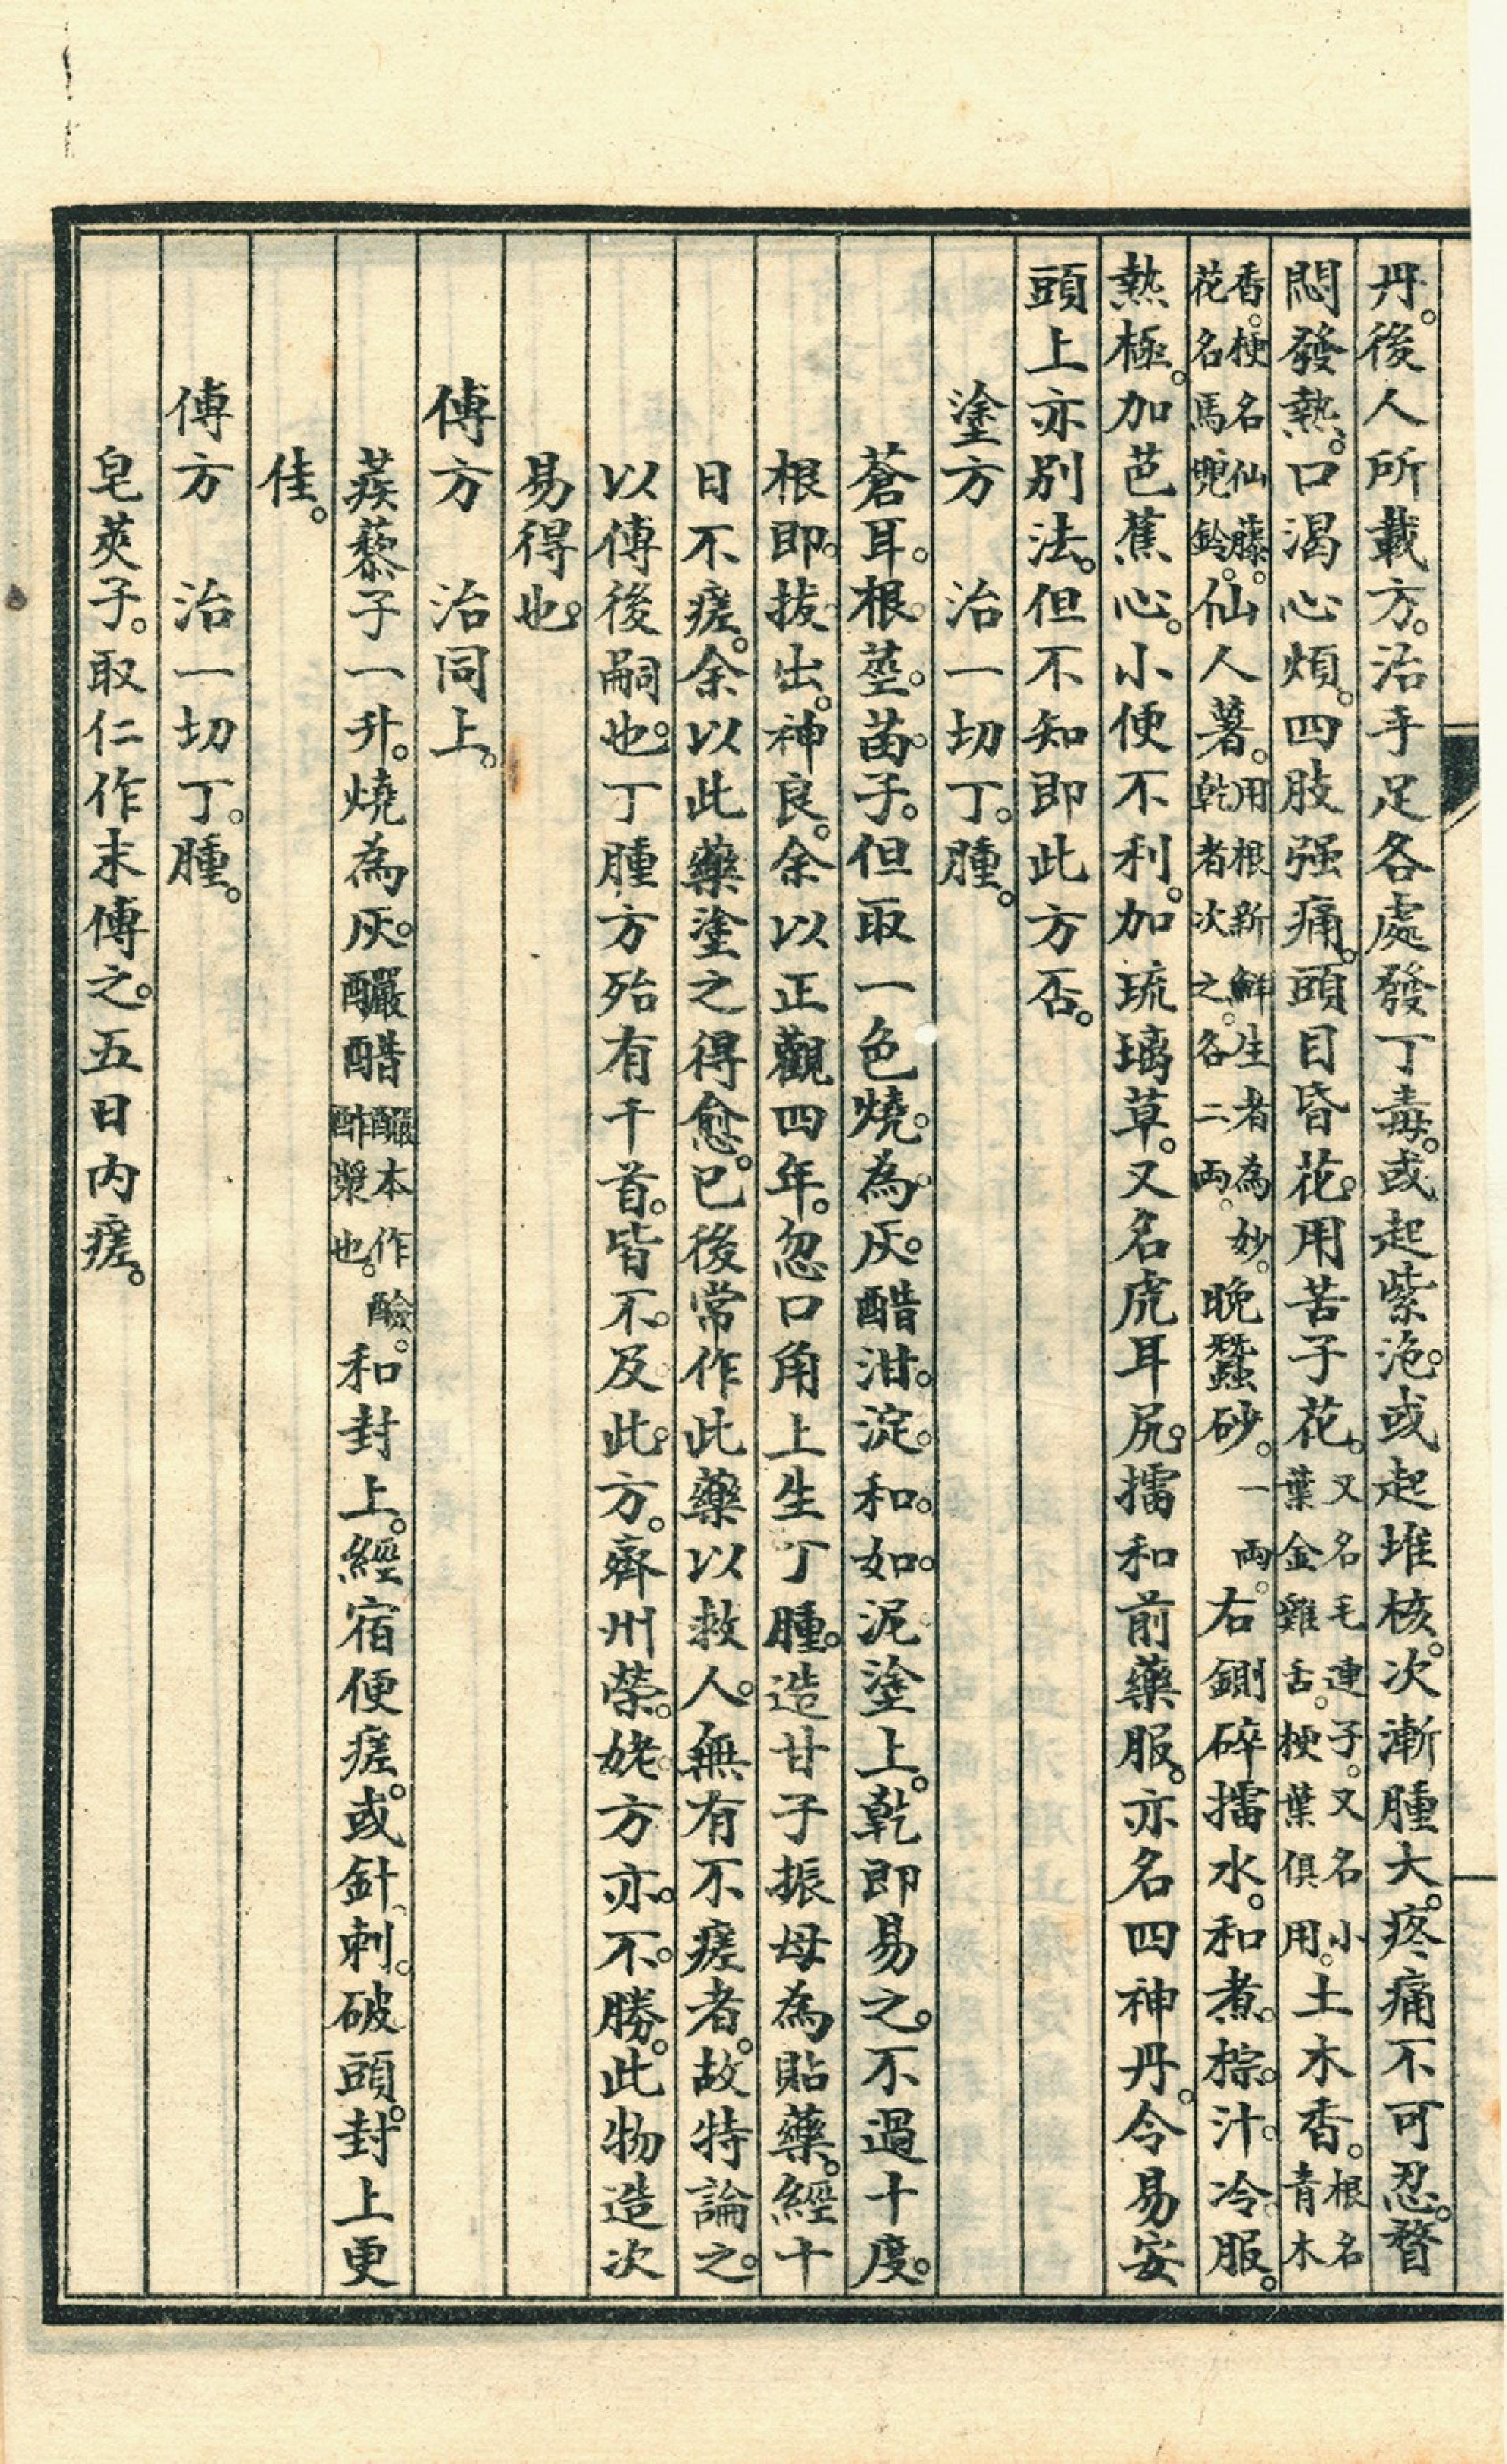 丹。後人所載方。治手足各處發丁毒。或起紫泡。或起堆核。次漸腫大。疼痛不可忍。瞀
悶發熱。口渴心煩。四肢强痛。頭目昏花。用苦子花。又名毛連子。又名小葉金雞舌。梗葉俱用。土木香。根名青木
香。梗名仙藤。花名馬兜鈴。仙人薯。用根新鮮生者為妙。乾者次之。各二兩。晚蠶砂。一兩。右鍘碎擂水。和煮。棕。汁。冷服。
熱極。加芭蕉心。小便不利。加琉璃草。又名虎耳尻。擂和前藥服。亦名四神丹。令易安
頭上亦別法。但不知即此方否。
塗方　治一切丁。腫。
蒼耳。根。莖。苗。子。但取一色燒。為。灰。醋泔。淀。和。如。泥塗上。乾即易之。不過十度。
根即。拔出。神良。余以正觀四年。忽口角上生丁腫。造甘子振母為貼藥。經十
日不瘥。余以此藥塗之得愈。已後常作此藥以救人。無有不瘥者。故特論之。
以傅後嗣也。丁腫方殆有千首。皆不。及此。方。齊州榮。姥。方亦。不。勝。此物造次
易得也。
傅方　治同上。
蒺藜子一升。燒為灰。釅醋釅本作醶。酢漿也。和封上。經宿便瘥。或針刺。破頭。封上更
佳。
傅方　治一切丁。腫。
皂莢子。取仁作末傅之。五日內瘥。